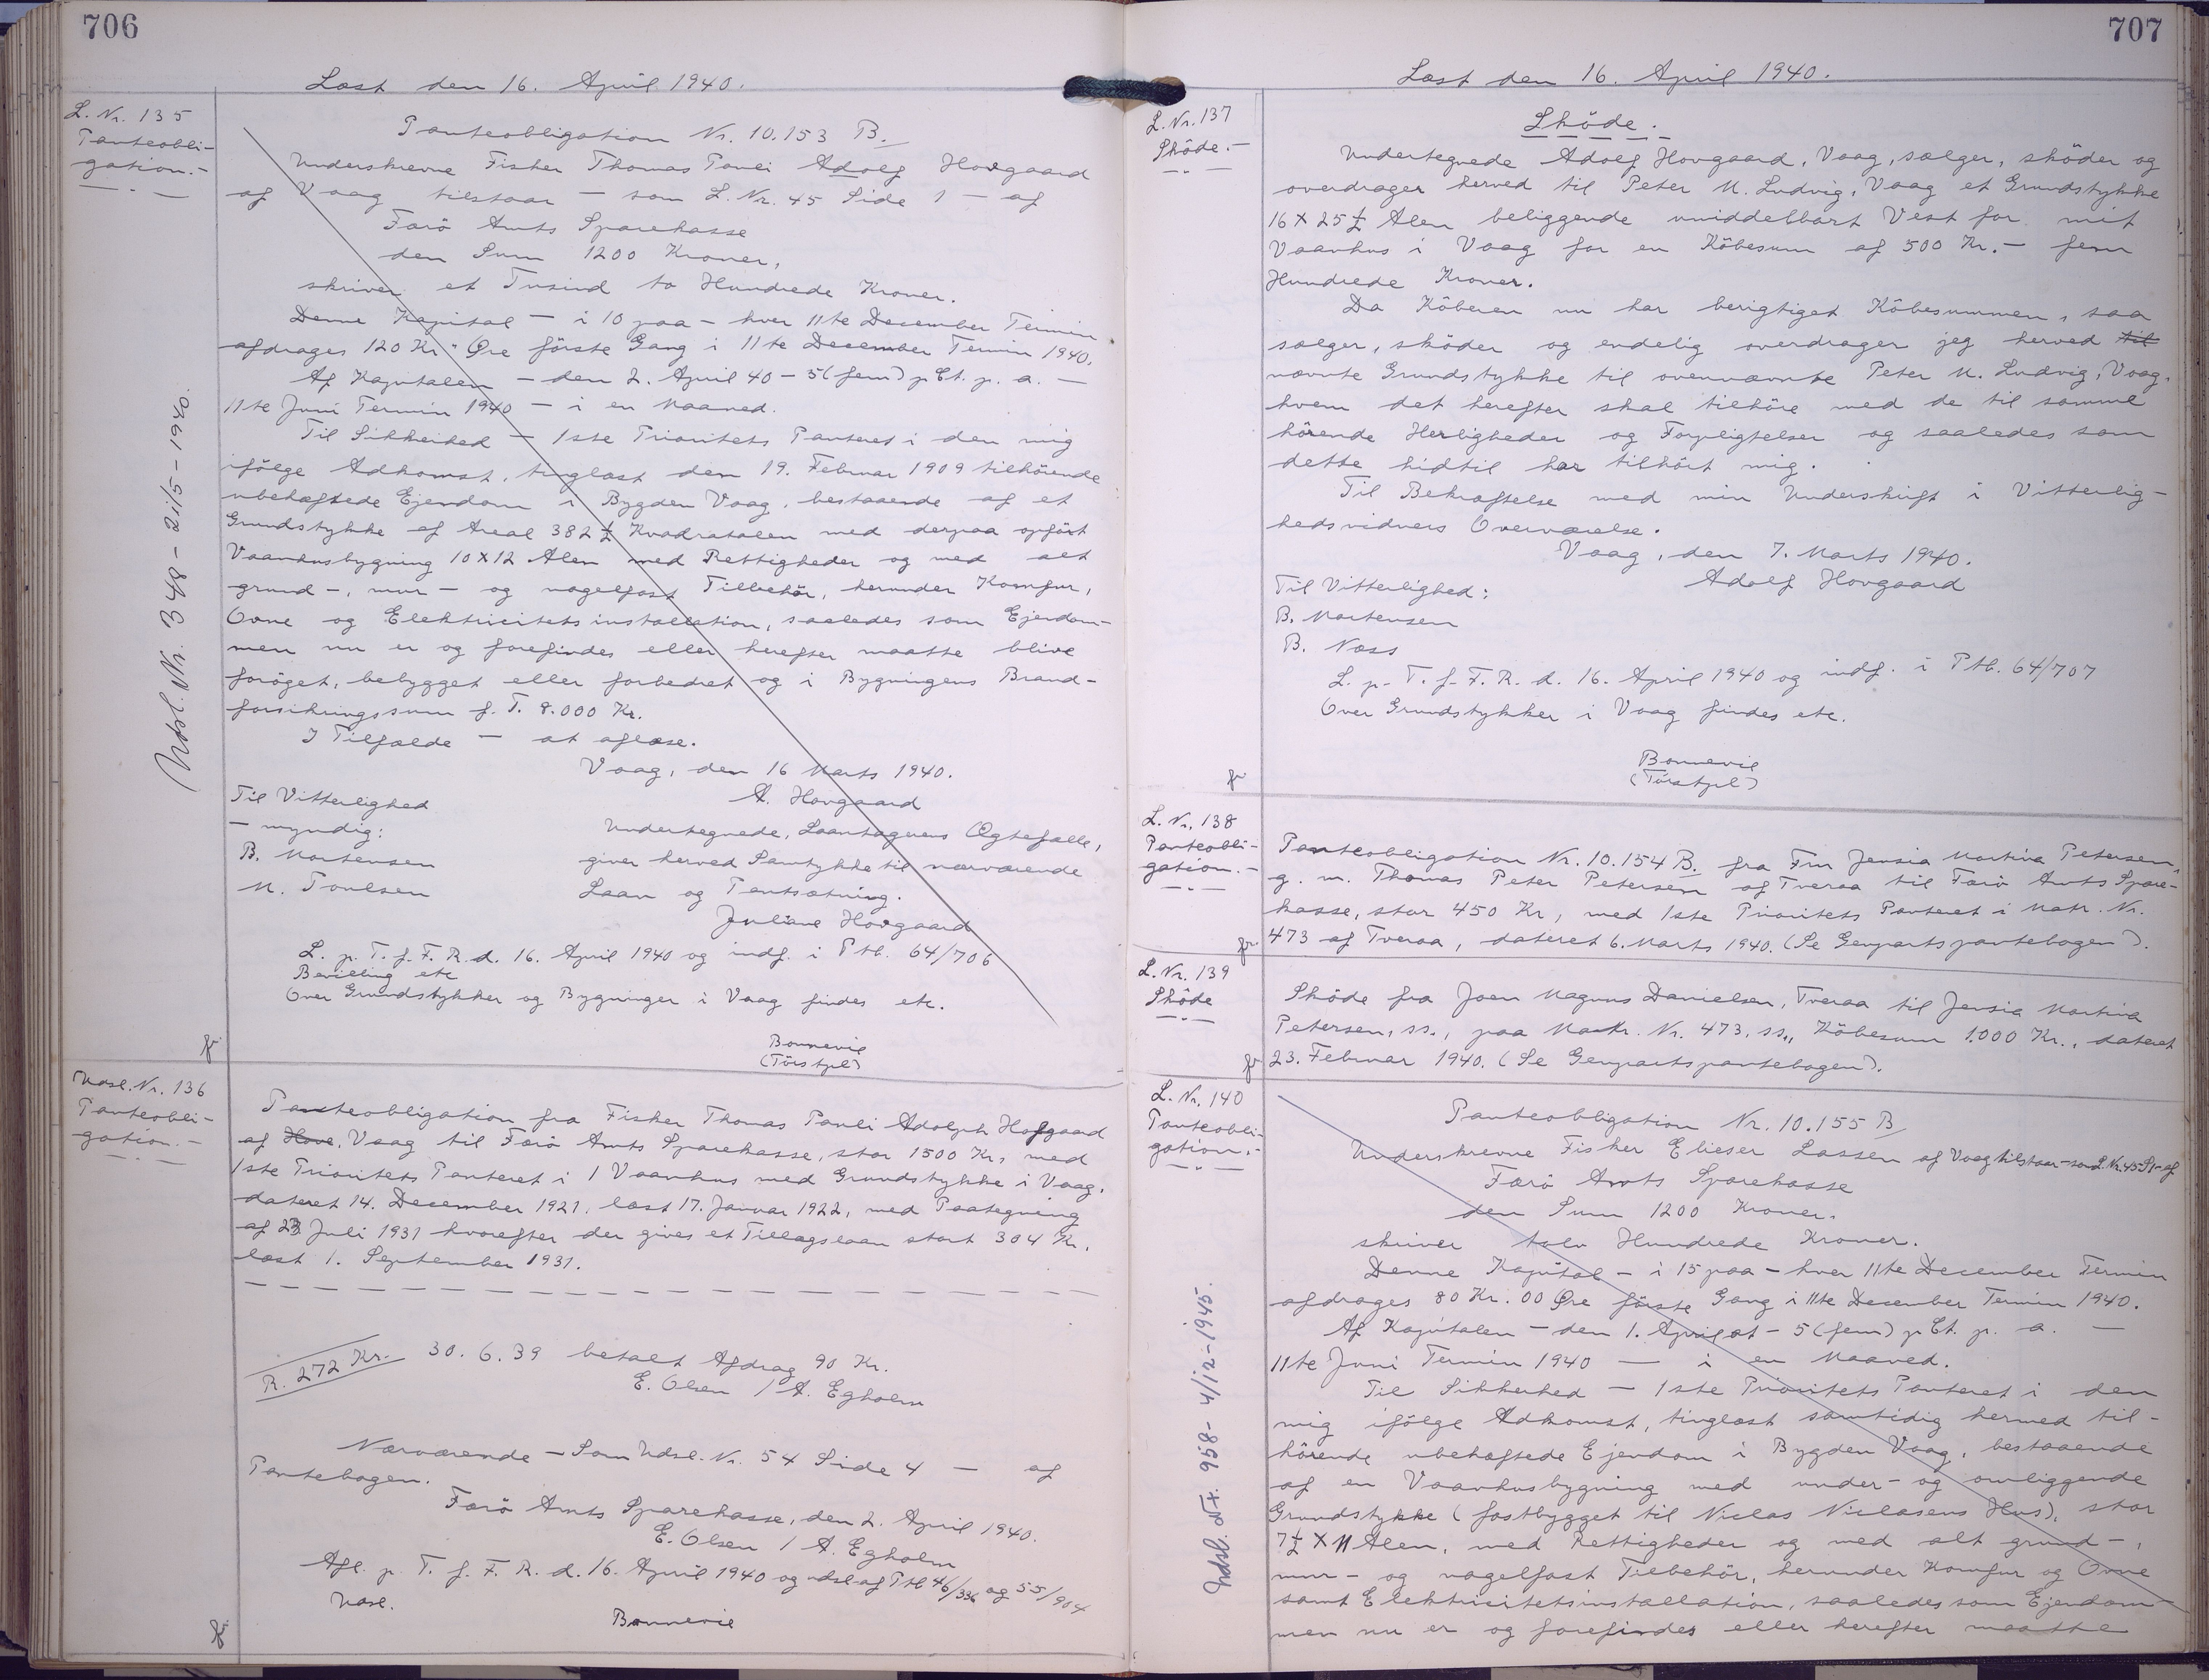 706
Læst den 16. April 1940.
L. Nr. 135
Panteobli-
gation.-
Udsl. Nr. 348 - 21/5 - 1940.
Panteobligation Nr. 10.153 B.
Underskrevne Fisker Thomas Pauli Adolf Hovgaard
af Vaag tilstaar — som L. Nr. 45 Side 1 — af
Færö Amts Sparekasse
den Sum 1200 Kroner,
skriver et Tusind to Hundrede Kroner.
Denne Kapital — i 10 paa — hver 11te December Termin
afdrages 120 Kr " Øre förste Gang i 11te December Termin 1940.
Af Kapitalen — den 2. April 40 — 5 (fem) p Ct. p. a. —
11te Juni Termin 1940 — i en Maaned.
Til Sikkerhed — 1ste Prioritets Panteret i den mig
ifölge Adkomst, tinglæst den 19. Februar 1909 tilhörende
ubehæftede Ejendom i Bygden Vaag, bestaaende af et
Grundstykke af Areal 382 1/2 Kvadratalen med derpaa opfört
Vaanhusbygning 10 X 12 Alen med Rettigheder og med alt
grund-, mur- og nagelfast Tilbehör, herunder Komfur,
Ovne og Elektricitetsinstallation, saaledes som Ejendom-
men nu er og forefindes eller herefter maatte blive
foröget, bebygget eller forbedret og i Bygningens Brand-
forsikringssum f. T. 8.000 Kr.
I Tilfælde — at aflæse.
Vaag, den 16 Marts 1940.
A. Hovgaard
Til Vitterlighed
— myndig:
B. Mortensen
M. Poulsen
Undertegnede, Laantagerens Ægtefælle,
giver herved Samtykke til nærværende
Laan og Pantsætning.
Juliane Hovgaard
L. p. T. f. F. R. d. 16. April 1940 og indf. i Ptb. 64/706
Bevilling etc
Over Grundstykker og Bygninger i Vaag findes etc.
Bonnevie
(Törstpl)
fr
Udsl. Nr. 136
Panteobli-
gation.-
Panteobligation fra Fisker Thomas Pauli Adolph Hofgaard
af Hove, Vaag til Færö Amts Sparekasse, stor 1500 Kr, med
1ste Prioritets Panteret i 1 Vaanhus med Grundstykke i Vaag,
dateret 14. December 1921, læst 17. Januar 1922, med Paategning
af 23 Juli 1931 hvorefter der gives et Tillægslaan stort 304 Kr,
læst 1. September 1931.
R. 272 Kr.
30. 6. 39 betalt Afdrag 90 Kr.
E. Olsen / A. Egholm
Nærværende — Som Udsl. Nr. 54 Side 4 — af
Pantebogen.
Færö Amts Sparekasse, den 2. April 1940.
E. Olsen / A. Egholm
Afl. p. T. f. F. R. d. 16. April 1940 og udsl af Ptb 46/336 og 55/904
Udsl.
Bonnevie
fr
707
Læst den 16. April 1940.
L. Nr. 137
Sköde.-
Sköde.
Undertegnede Adolf Hovgaard, Vaag, sælger, sköder og
overdrager herved til Peter M. Ludvig, Vaag et Grundstykke
16 X 25 1/2 Alen beliggende umiddelbart Vest for mit
Vaanhus i Vaag for en Köbesum af 500 Kr. — fem
Hundrede Kroner.
Da Köberen nu har berigtiget Köbesummen, saa
sælger, sköder og endelig overdrager jeg herved til
nævnte Grundstykke til ovennævnte Peter M. Ludvig, Vaag,
hvem det herefter skal tilhöre med de til samme
hörende Herligheder og Forpligtelser og saaledes som
dette hidtil har tilhört mig.
Til Bekræftelse med min Underskrift i Vitterlig-
hedsvidners Overværelse.
Vaag, den 7. Marts 1940.
Adolf Hovgaard
Til Vitterlighed:
B. Mortensen
B. Næss
L. p. T. f. F. R. d. 16. April 1940 og indf. i Ptb. 64/707
Over Grundstykker i Vaag findes etc.
Bonnevie
(Törstpl)
fr
L. Nr. 138
Panteobli-
gation.-
Panteobligation Nr. 10.154 B. fra Fru Jensia Martina Petersen,
g. m. Thomas Peter Petersen af Tveraa til Færö Amts Spare-
kasse, stor 450 Kr, med 1ste Prioritets Panteret i Matr. Nr.
473 af Tveraa, dateret 6. Marts 1940. (Se Genpartspantebogen).
fr
L. Nr. 139
Sköde
Sköde fra Joen Magnus Danielsen, Tveraa til Jensia Martina
Petersen, ss., paa Matr. Nr. 473, ss., Köbesum 1.000 Kr., dateret
23. Februar 1940. (Se Genpartspantebogen).
fr
L. Nr. 140
Panteobli-
gation.-
Udsl. Nr. 958 - 4/12 - 1945.
Panteobligation Nr. 10.155 B
Underskrevne Fisker Elieser Lassen af Vaag tilstaar — som L. Nr. 45 S 1 — af
Færö Amts Sparekasse
den Sum 1200 Kroner.
skriver tolv Hundrede Kroner.
Denne Kapital — i 15 paa — hver 11te December Termin
afdrages 80 Kr. 00 Øre förste Gang i 11te December Termin 1940.
Af Kapitalen — den 1. April at — 5 (fem) p Ct. p. a. —
11te Juni Termin 1940 — i en Maaned.
Til Sikkerhed — 1ste Prioritets Panteret i den
mig ifölge Adkomst, tinglæst samtidig hermed til-
hörende ubehæftede Ejendom i Bygden Vaag, bestaaende
af en Vaanhusbygning med under- og omliggende
Grundstykke (fastbygget til Niclas Niclasens Hus), stor
7 1/2 X 11 Alen, med Rettigheder og med alt grund-,
mur- og nagelfast Tilbehör, herunder Komfur og Ovne
samt Elektricitetsinstallation, saaledes som Ejendom-
men nu er og forefindes eller herefter maatte